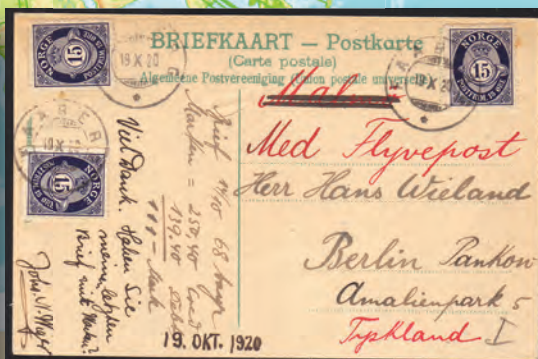 BRIEFKAART – Postkarte
(Carte postale)
Algemeene Postvereeniging (Union postale universelle)
NORGE
15
NORGE
15
POSTFRIM. 15 ØRE
NORGE
15
19 X 20
19 X 20
19 X 20
KAABER
Med Flyvepost
Herr Hans Wieland
Berlin Pankow
Amalienpark 5
Tyskland I
Brief 14/10 68
Marken = 250,40
111 - Mark
139.40
Viel Dank. Haben Sie
meinen letzten
Brief mit Marken?
19. OKT. 1920